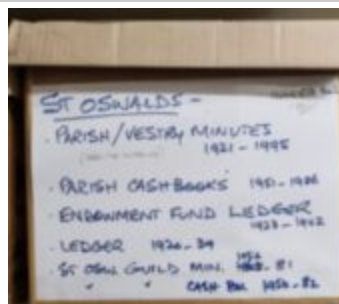 ST OSWALDS -
· PARISH/VESTRY MINUTES
1921 - 1995
· PARISH CASHBOOKS 1951 -
· ENDOWMENT FUND LEDGER
1923 - 1942
· LEDGER 1920 - 39
· ST OSW. GUILD MIN. 1956 - 81
" " CASH BK 1956 - 82